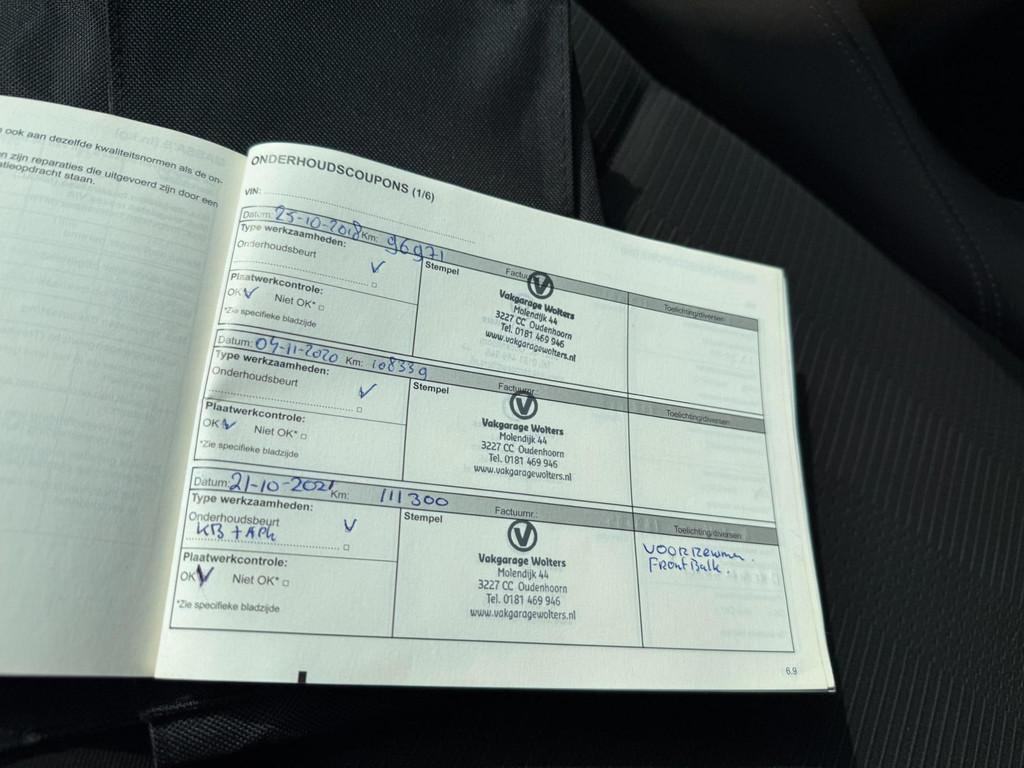 ook aan dezelfde kwaliteitsnormen als de on-
en zijn reparaties die uitgevoerd zijn door een
atieopdracht staan.
ONDERHOUDSCOUPONS (1/6)
VIN:
Datum: 25-10-2018 Km: 96971 Factuurnr.:
Type werkzaamheden:
Onderhoudsbeurt
Stempel
Toelichting/diversen
Plaatwerkcontrole:
OK Niet OK*
*Zie specifieke bladzijde
Vakgarage Wolters
Molendijk 44
3227 CC Oudenhoorn
Tel. 0181 469 946
www.vakgaragewolters.nl
Datum: 04-11-2020 Km: 108339 Factuurnr.:
Type werkzaamheden:
Onderhoudsbeurt
Stempel
Toelichting/diversen
Plaatwerkcontrole:
OK Niet OK*
*Zie specifieke bladzijde
Vakgarage Wolters
Molendijk 44
3227 CC Oudenhoorn
Tel. 0181 469 946
www.vakgaragewolters.nl
Datum: 21-10-2021 Km: 111300 Factuurnr.:
Type werkzaamheden:
Onderhoudsbeurt
KB + APK
Stempel
Toelichting/diversen
Plaatwerkcontrole:
OK Niet OK*
*Zie specifieke bladzijde
Vakgarage Wolters
Molendijk 44
3227 CC Oudenhoorn
Tel. 0181 469 946
www.vakgaragewolters.nl
VOORRemmen.
FRONTBalk.
6.9